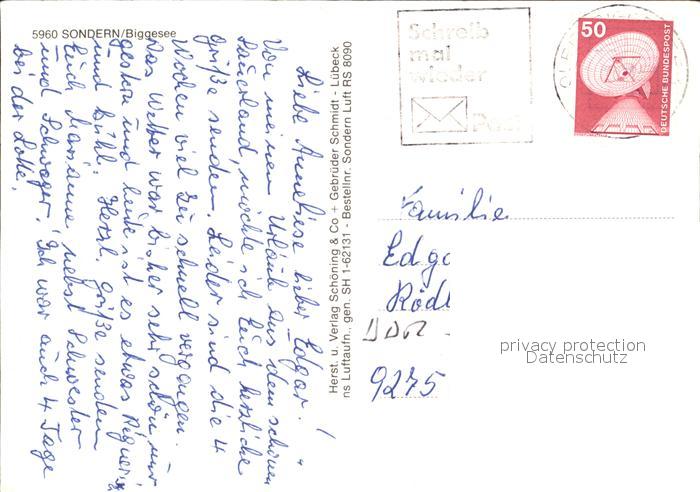 5960 SONDERN/Biggesee
Liebe Anneliese lieber Edgar!
Von meinem Urlaub aus dem schönen
Sauerland, möchte ich Euch herzliche
Grüße senden. Leider sind die 4
Wochen viel zu schnell vergangen.
Das Wetter war bisher sehr schön nur
gestern und heute ist es etwas regnerisch
und kühl. Herzl. Grüße senden
Euch Marianne nebst Schwester
und Schwager. Ich war auch 4 Tage
bei der Lotte.
Herst. u. Verlag Schöning & Co + Gebrüder Schmidt - Lübeck
ns Luftaufn., gen. SH 1-62131 - Bestellnr. Sondern Luft RS 8090
Schreib
mal
wieder
Post
50
DEUTSCHE BUNDESPOST
Familie
Edga
Rödl
DDR
9275
privacy protection
Datenschutz